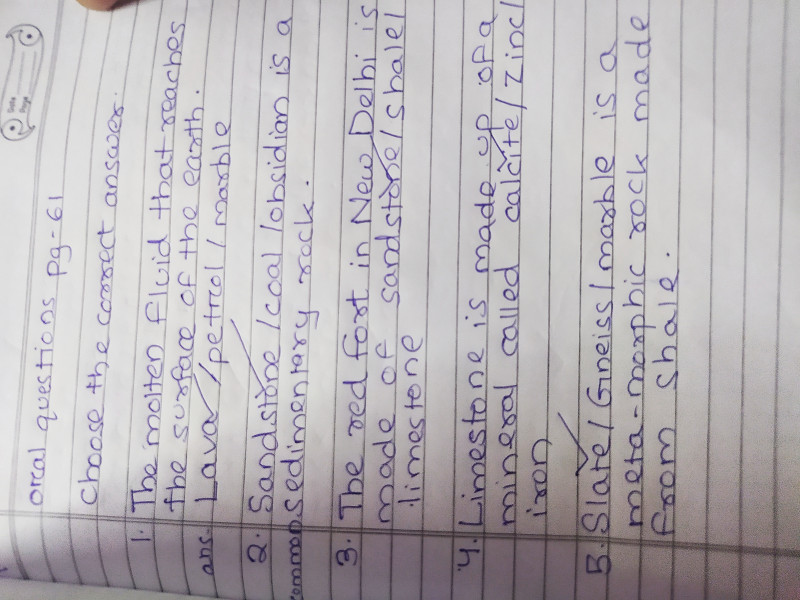 Date
Page
oral questions pg-61
choose the correct answer.
1. The molten fluid that reaches
the surface of the earth.
ans. Lava / petrol / marble
2. Sandstone / coal / obsidian is a
common sedimentary rock.
3. The red fort in New Delhi is
made of sandstone / shale /
limestone
4. Limestone is made up of a
mineral called calcite / zinc /
iron
5. Slate / Gneiss / marble is a
meta-morphic rock made
from shale.